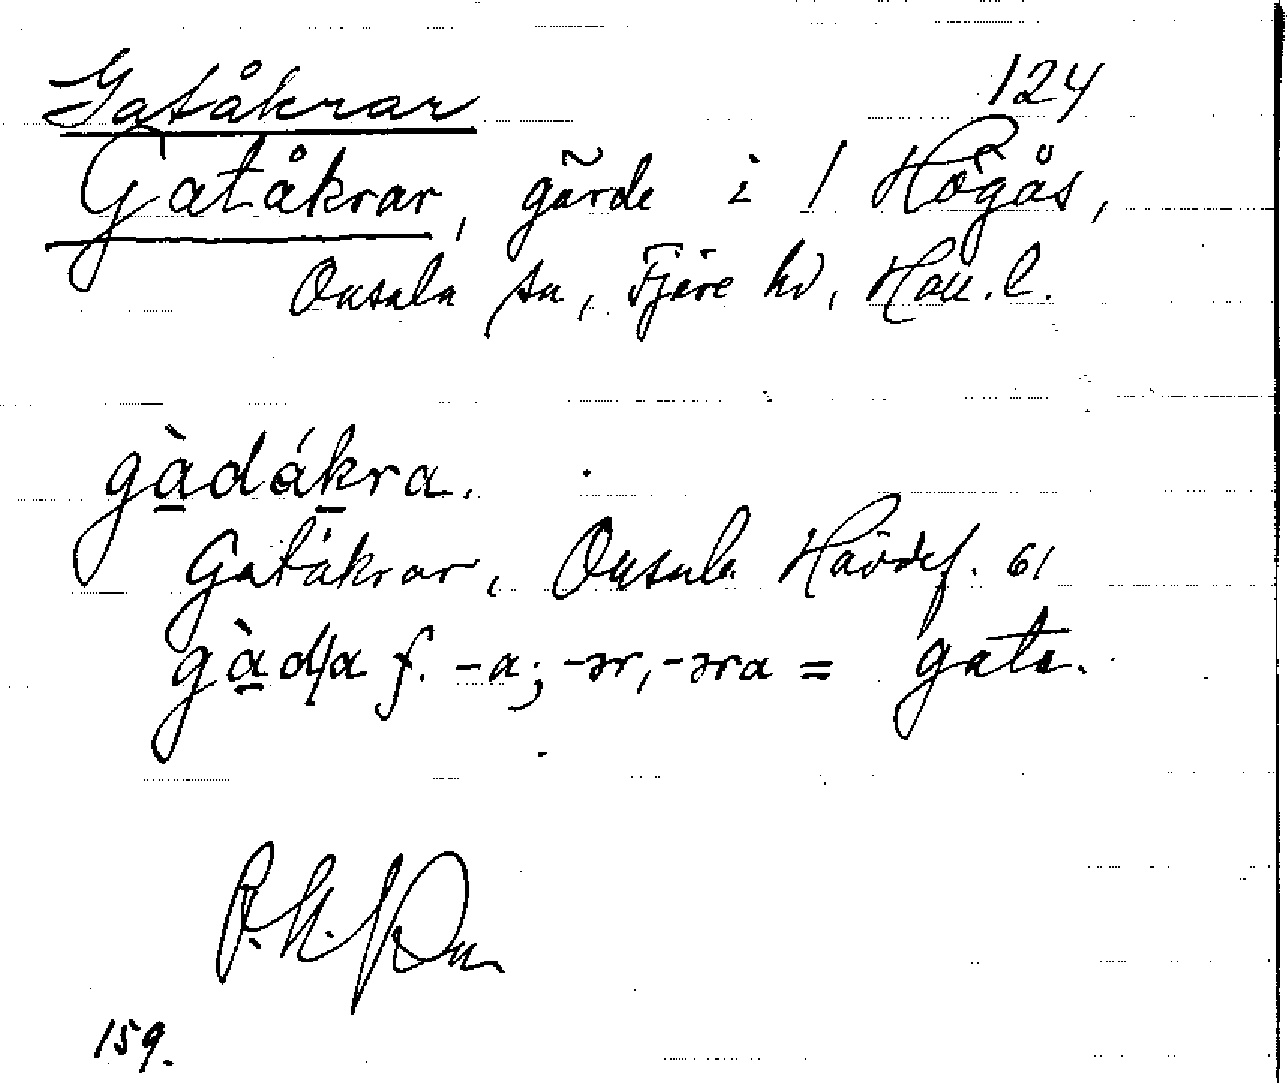 Gatåkrar 124
Gatåkrar, gärde i 1 Högås,
Onsala sn, Fjäre hd, Hall. l.
gàdákra.
Gatåkrar, Onsala 61
gàd/a f. -a; -ər, -əra = gata.
P. N.
159.